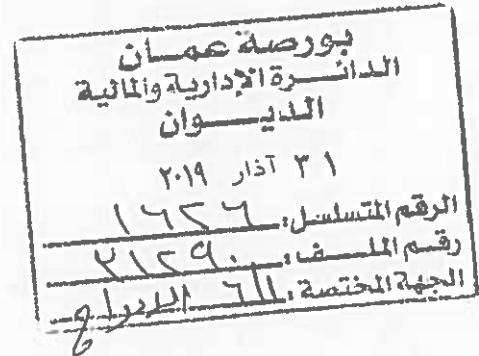 بورصة عمان
الدائرة الإدارية والمالية
الديوان
٣١ آذار ٢٠١٩
الرقم المتسلسل: ١٦٢٦
رقم الملف: ٢١٢٩٠
الجهة المختصة: الإدراج